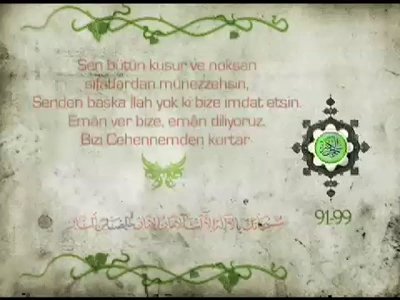 Sen bütün kusur ve noksan
sıfatlardan münezzehsin,
Senden başka İlah yok ki bize imdat etsin.
Emân ver bize, emân diliyoruz.
Bizi Cehennemden kurtar.
91-99